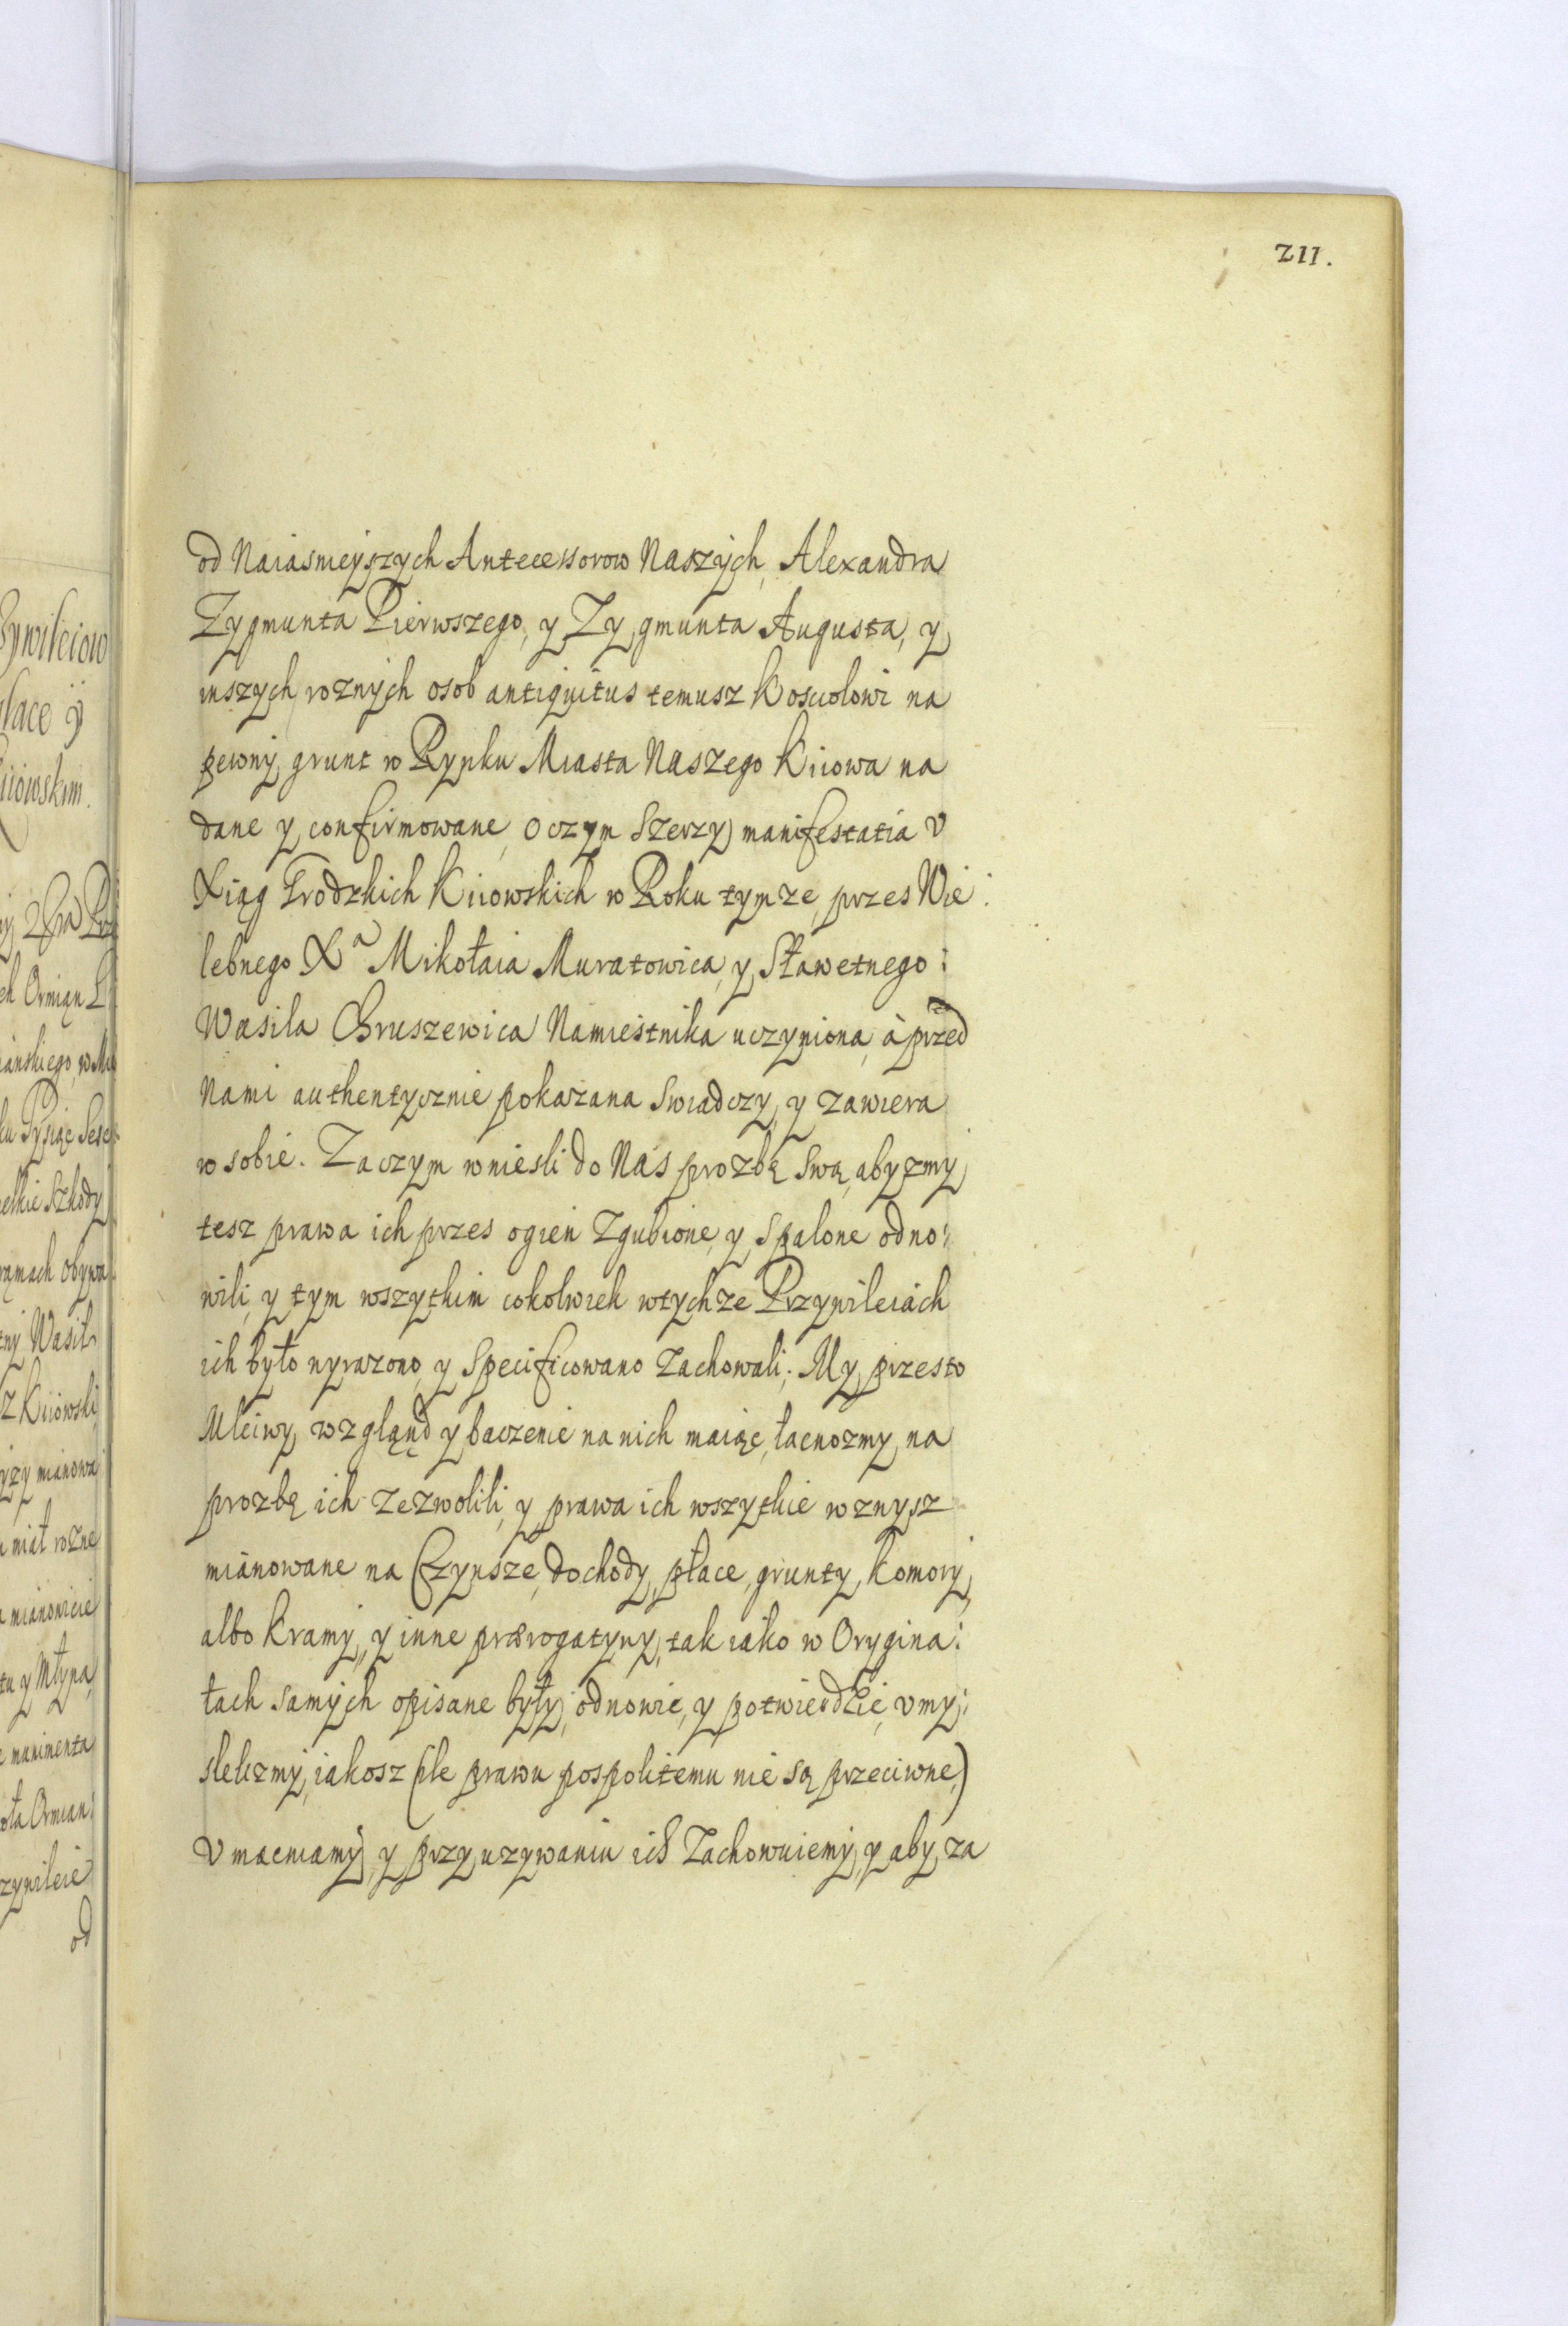 211.
od Naiasnieyszych Antecessorow Naszych, Alexandra
Zygmunta Pierwszego, y Zygmunta Augusta, y
inszych roznych osob antiquitus temusz Kosciolowi na
pewny grunt w Rynku Miasta Naszego Kiiowa na
dane y confirmowane, o czym Szerzy manifestatia v
Xiąg Grodzkich Kiiowskich w Roku tymze, przes Wie:
lebnego Xa Mikołaia Muratowica, y Sławetnego:
Wasila Gruszewica Namiestnika uczyniona, à przed
Nami authentycznie pokazana Swiadczy, y zawiera
w sobie. Zaczym wniesli do Nas prozbę Swą, abyzmy
tesz prawa ich przes ogien Zgubione, y Spalone odno:
wili, y tym wszytkim cokolwiek w tychze Przywileiach
ich było wyrazono, y Specificowano Zachowali; My przesto
Mlciwy wzgląnd y baczenie na nich maiąc, łacnozmy na
prozbę ich zezwolili, y prawa ich wszytkie wznysz
mianowane na Czynsze, dochody, płace, grunty, komory,
albo kramy, y inne prærogatywy, tak iako w Orygina:
łach samych opisane były, odnowic, y potwierdzic, vmy:
slelizmy, iakosz (ile prawu pospolitemu nie są przeciwne,)
Vmacniamy, y przy uzywaniu ich Zachowuiemy, y aby za
Przywileiow
płace ÿ
Kiiowskim.
Ormian
Tysiąc
Szkody
Wasil
Kiiowski
mianowa
miał rozne
mianowicie
y Młyna,
munimenta
Ormian:
od